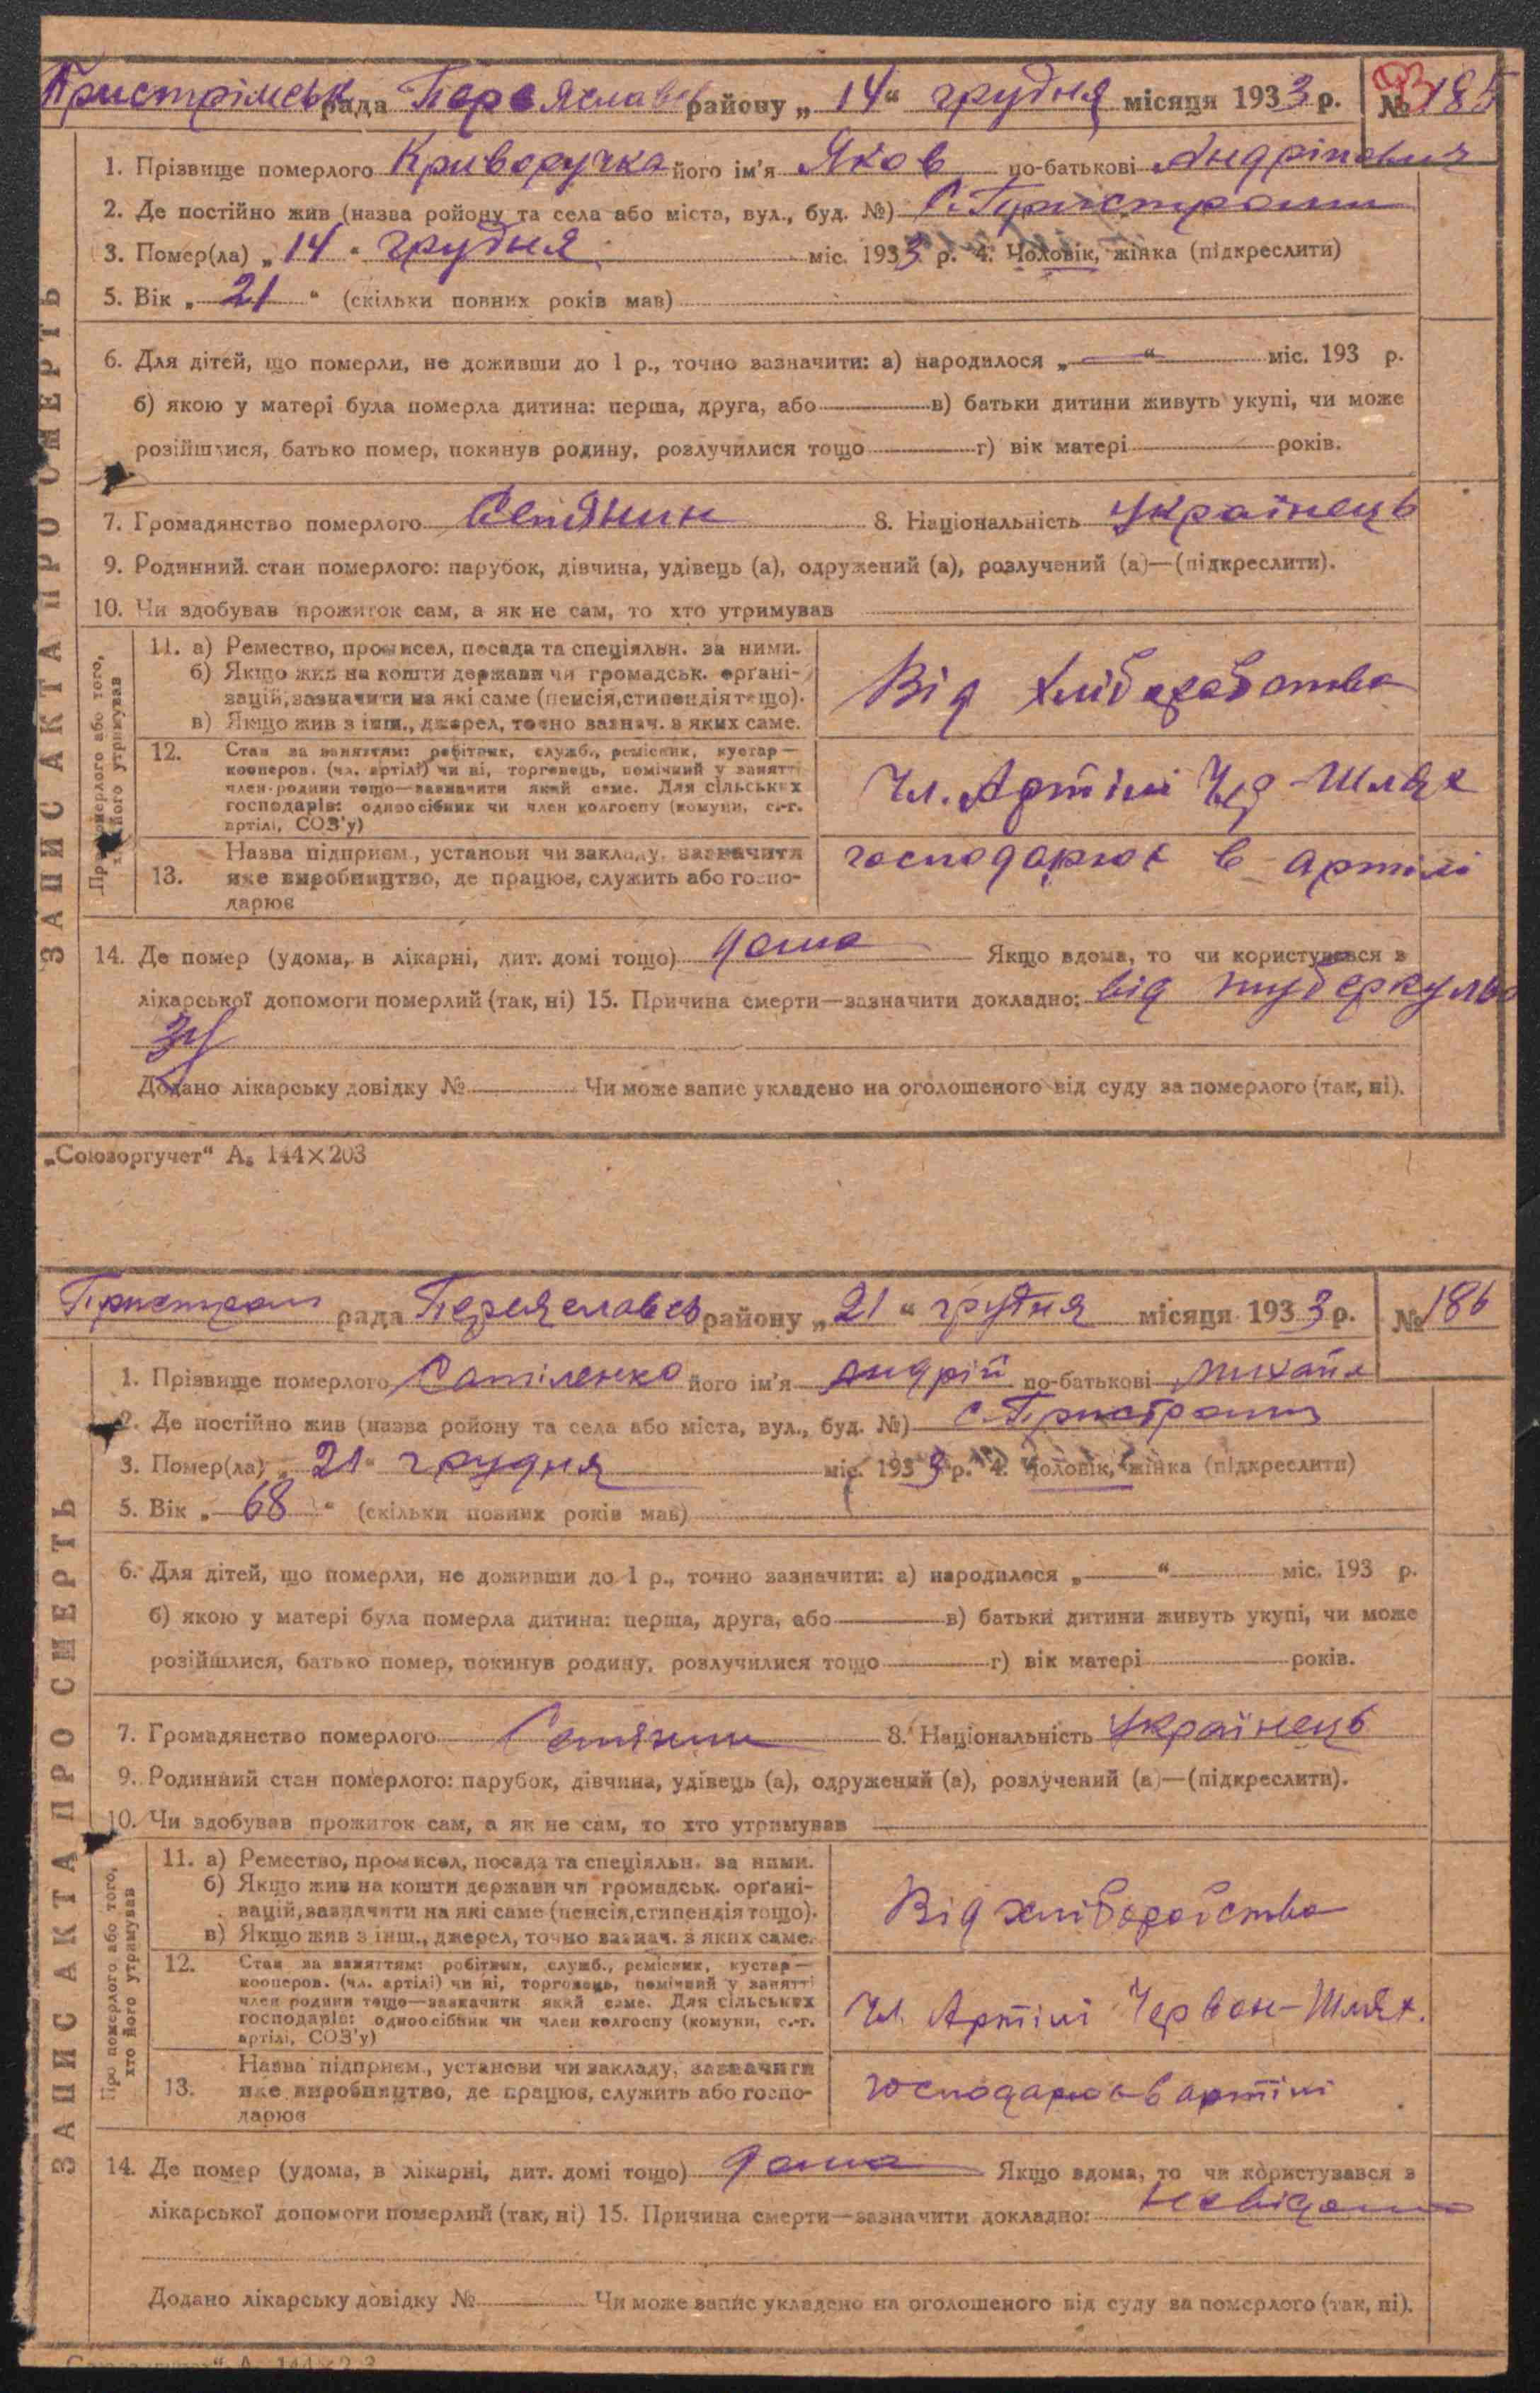 Пристрімськ рада Переяславсь району „14“ грудня місяця 1933 р. № 185
93
1. Прізвище померлого Криворучка його ім'я Яков по-батькові Андріпович
2. Де постійно жив (назва ройону та села або міста, вул., буд. №) С. Пристроми
3. Помер(ла) „14“ грудня міс. 1933 р. 4. Чоловік, жінка (підкреслити)
5. Вік „21“ (скільки повних років мав)
6. Для дітей, що померли, не доживши до 1 р., точно зазначити: а) народилося „—“ міс. 193 р.
б) якою у матері була померла дитина: перша, друга, або в) батьки дитини живуть укупі, чи може
розійшлися, батько помер, покинув родину, розлучилися тощо г) вік матері років.
7. Громадянство померлого Селянин 8. Національність Українець
9. Родинний стан померлого: парубок, дівчина, удівець (а), одружений (а), розлучений (а)—(підкреслити).
10. Чи здобував прожиток сам, а як не сам, то хто утримував
ЗАПИС АКТА ПРО СМЕРТЬ
Про померлого або того,
хто його утримував
11. а) Ремество, промисел, посада та спеціяльн. за ними.
б) Якщо жив на кошти держави чи громадськ. орґані-
зацій, зазначити на які саме (пенсія, стипендія тощо).
в) Якщо жив з інш., джерел, точно зазнач. з яких саме.
Від Хліборобства
12. Стан за заняттям: робітник, служб., ремісник, кустар—
кооперов. (чл. артілі) чи ні, торговець, помічний у занятті
член родини тощо—зазначити який саме. Для сільських
господарів: одноосібник чи член колгоспу (комуни, с.-г.
артілі, СОЗ'у)
Чл. Артілі Чер-Шлях
13. Назва підприєм., установи чи закладу, зазначити
яке виробництво, де працює, служить або госпо-
дарює
господарює в артілі
14. Де помер (удома, в лікарні, дит. домі тощо) дома Якщо вдома, то чи користувався з
лікарської допомоги померлий (так, ні) 15. Причина смерти—зазначити докладно: від туберкульо
зу
Додано лікарську довідку № Чи може запис укладено на оголошеного від суду за померлого (так, ні).
„Союзоргучет“ А₅ 144×203
Пристром рада Переяславсь району „21“ грудня місяця 1933 р. № 186
1. Прізвище померлого Сатіленко його ім'я Андрій по-батькові Михайл
2. Де постійно жив (назва ройону та села або міста, вул., буд. №) с. Пристроми
3. Помер(ла) „21“ грудня міс. 1933 р. 4. Чоловік, жінка (підкреслити)
5. Вік „68“ (скільки повних років мав)
6. Для дітей, що померли, не доживши до 1 р., точно зазначити: а) народилося „—“ міс. 193 р.
б) якою у матері була померла дитина: перша, друга, або в) батьки дитини живуть укупі, чи може
розійшлися, батько помер, покинув родину, розлучилися тощо г) вік матері років.
7. Громадянство померлого Селянин 8. Національність Українець
9. Родинний стан померлого: парубок, дівчина, удівець (а), одружений (а), розлучений (а)—(підкреслити).
10. Чи здобував прожиток сам, а як не сам, то хто утримував
ЗАПИС АКТА ПРО СМЕРТЬ
Про померлого або того,
хто його утримував
11. а) Ремество, промисел, посада та спеціяльн. за ними.
б) Якщо жив на кошти держави чи громадськ. орґані-
зацій, зазначити на які саме (пенсія, стипендія тощо).
в) Якщо жив з інш., джерел, точно зазнач. з яких саме.
Від хліборобства
12. Стан за заняттям: робітник, служб., ремісник, кустар—
кооперов. (чл. артілі) чи ні, торговець, помічний у занятті
член родини тощо—зазначити який саме. Для сільських
господарів: одноосібник чи член колгоспу (комуни, с.-г.
артілі, СОЗ'у)
Чл. Артілі Червон-Шлях.
13. Назва підприєм., установи чи закладу, зазначити
яке виробництво, де працює, служить або госпо-
дарює
господарює в артілі
14. Де помер (удома, в лікарні, дит. домі тощо) дома Якщо вдома, то чи користувався з
лікарської допомоги померлий (так, ні) 15. Причина смерти—зазначити докладно: невідомо
Додано лікарську довідку № Чи може запис укладено на оголошеного від суду за померлого (так, ні).
„Союзоргучет“ А₅ 144×203